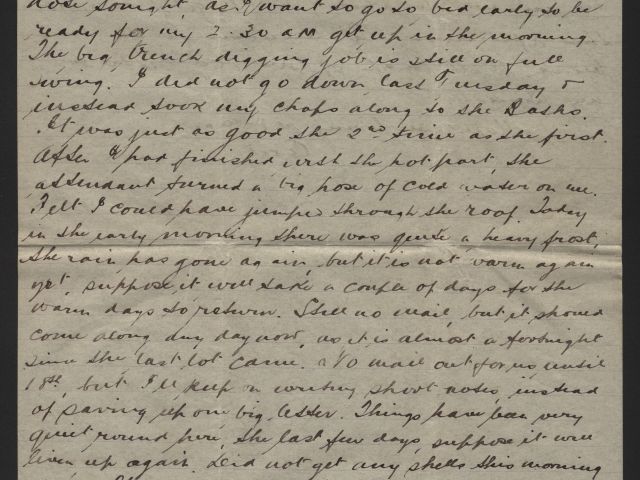 dose tonight, as I want to go to bed early to be
ready for my 2.30 am get up in the morning
The big trench digging job is still on full
swing. I did not go down last Tuesday &
instead took my chaps along to the Baths.
It was just as good the 2nd time as the first.
After I had finished with the hot part, the
attendant turned a big hose of cold water on me.
Felt I could have jumped through the roof. Today
in the early morning there was quite a heavy frost,
the rain has gone again, but it is not warm again
yet, suppose it will take a couple of days for the
warm days to return. Still no mail, but it should
come along any day now, as it is almost a fortnight
since the last lot came. No mail out for us until
18th, but I'll keep on writing short notes, instead
of saving up one big letter. Things have been very
quiet round here, the last few days, suppose it will
liven up again. Did not get any shells this morning